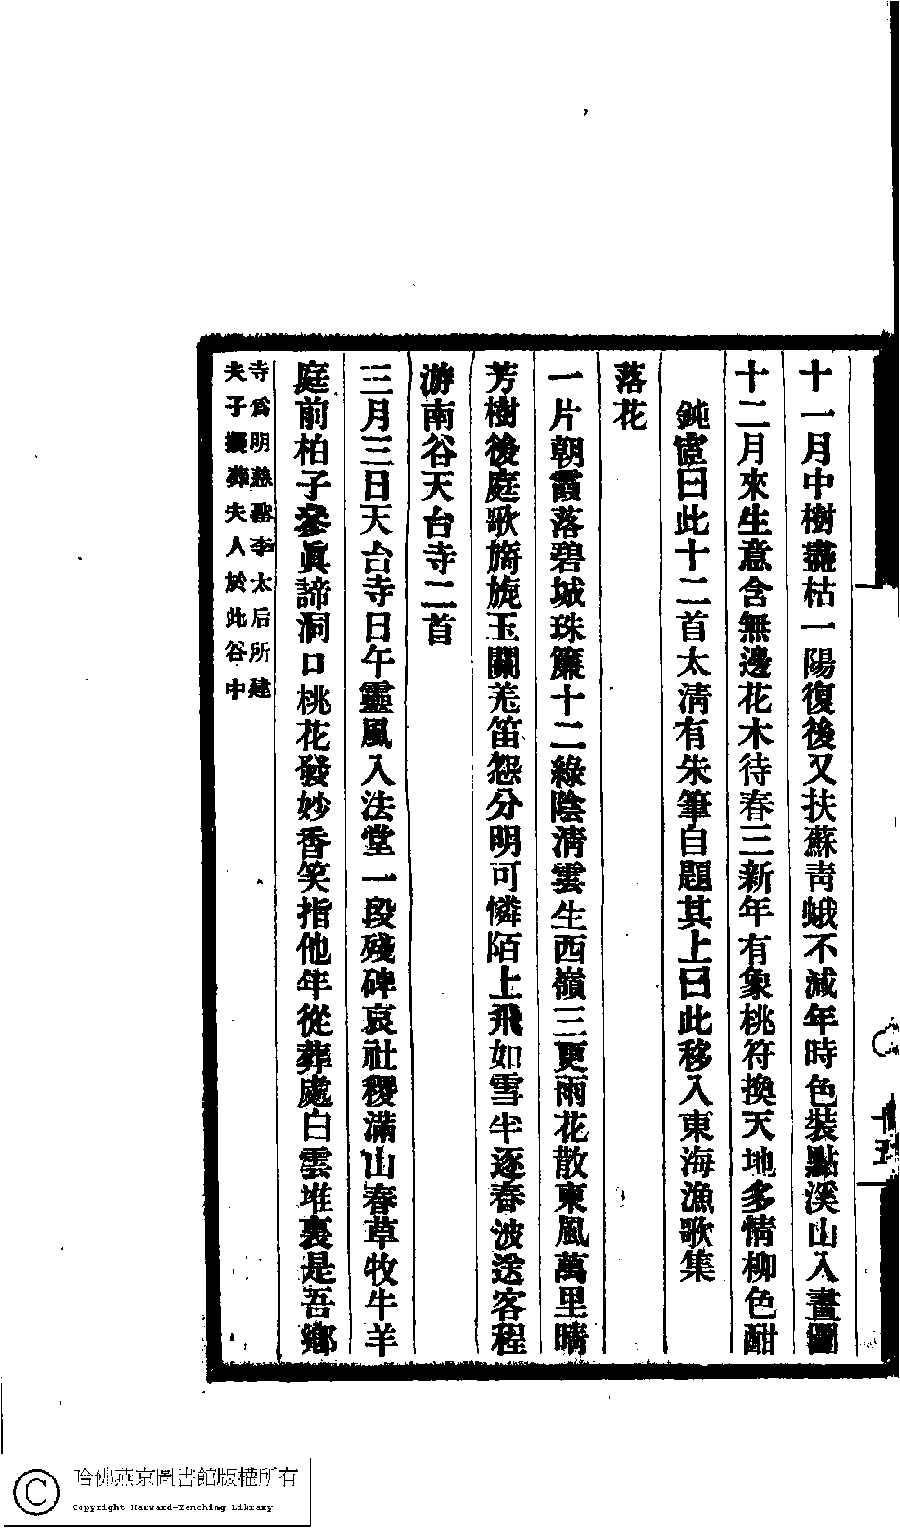 十一月中樹盡枯一陽復後又扶蘇靑蛾不減年時色裝點溪山入畫圖
十二月來生意含無邊花木待春三新年有象桃符換天地多情柳色酣
鈍宧曰此十二首太淸有朱筆自題其上曰此移入東海漁歌集
落花
一片朝霞落碧城珠簾十二綠陰淸雲生西嶺三更雨花散東風萬里晴
芳樹後庭歌旖旎玉關羌笛怨分明可憐陌上飛如雪半逐春波送客程
游南谷天台寺二首
三月三日天台寺日午靈風入法堂一段殘碑哀社稷滿山春草牧牛羊
庭前柏子參眞諦洞口桃花發妙香笑指他年從葬處白雲堆裏是吾鄉
寺爲明慈聖李太后所建
夫子擬葬夫人於此谷中
十五
哈佛燕京圖書館版權所有
Copyright Harvard-Yenching Library